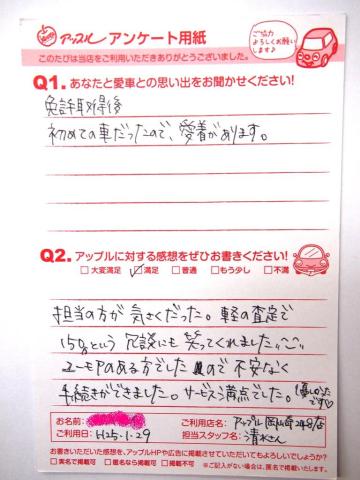 アップル アンケート用紙
ご協力
よろしくお願い
します♪
このたびは当店をご利用いただきありがとうございました。
Q1. あなたと愛車との思い出をお聞かせください!
免許取得後
初めての車だったので、愛着があります。
Q2. アップルに対する感想をぜひお書きください!
□大変満足 ☑満足 □普通 □もう少し □不満
担当の方が気さくだった。軽の査定で
という冗談にも笑ってくれました
ユーモアのある方でしたので不安なく
手続きができました。サービス満点でした。
お名前:
ご利用店名: アップル 岡山248店
ご利用日: H25.1.29
担当スタッフ名: 清水さん
お書きいただいた感想を、アップルHPや広告に掲載させていただいてもよろしいでしょうか?
□実名で掲載可 □匿名なら掲載可 □掲載不可 ※ご記入がない場合は、匿名にて掲載いたします。